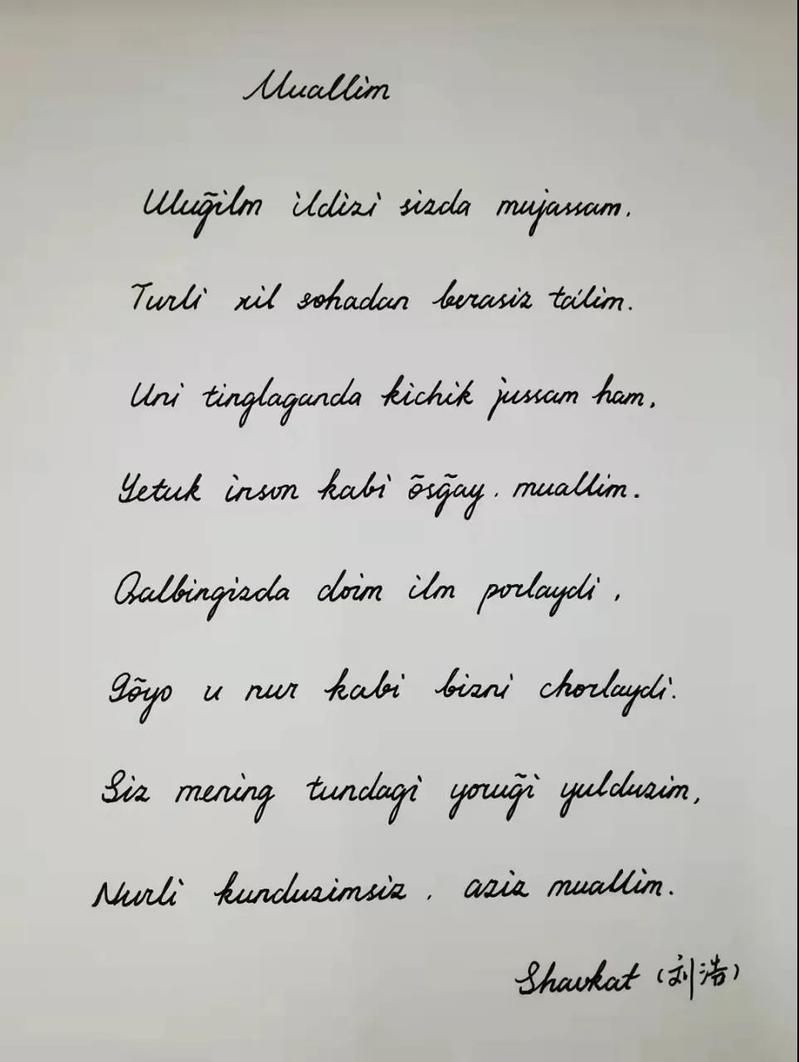 Muallim
Ulug̃ilm ildizi sizda mujassam.
Turli xil sohadan berasiz ta'lim.
Uni tinglaganda kichik jussam ham,
Yetuk inson kabi õsg̃ay, muallim.
Qalbingizda doim ilm porlaydi,
Gõyo u nur kabi bizni chorlaydi.
Siz mening tundagi yorug̃i yulduzim,
Nurli kunduzimsiz, aziz muallim.
Shavkat (刘浩)